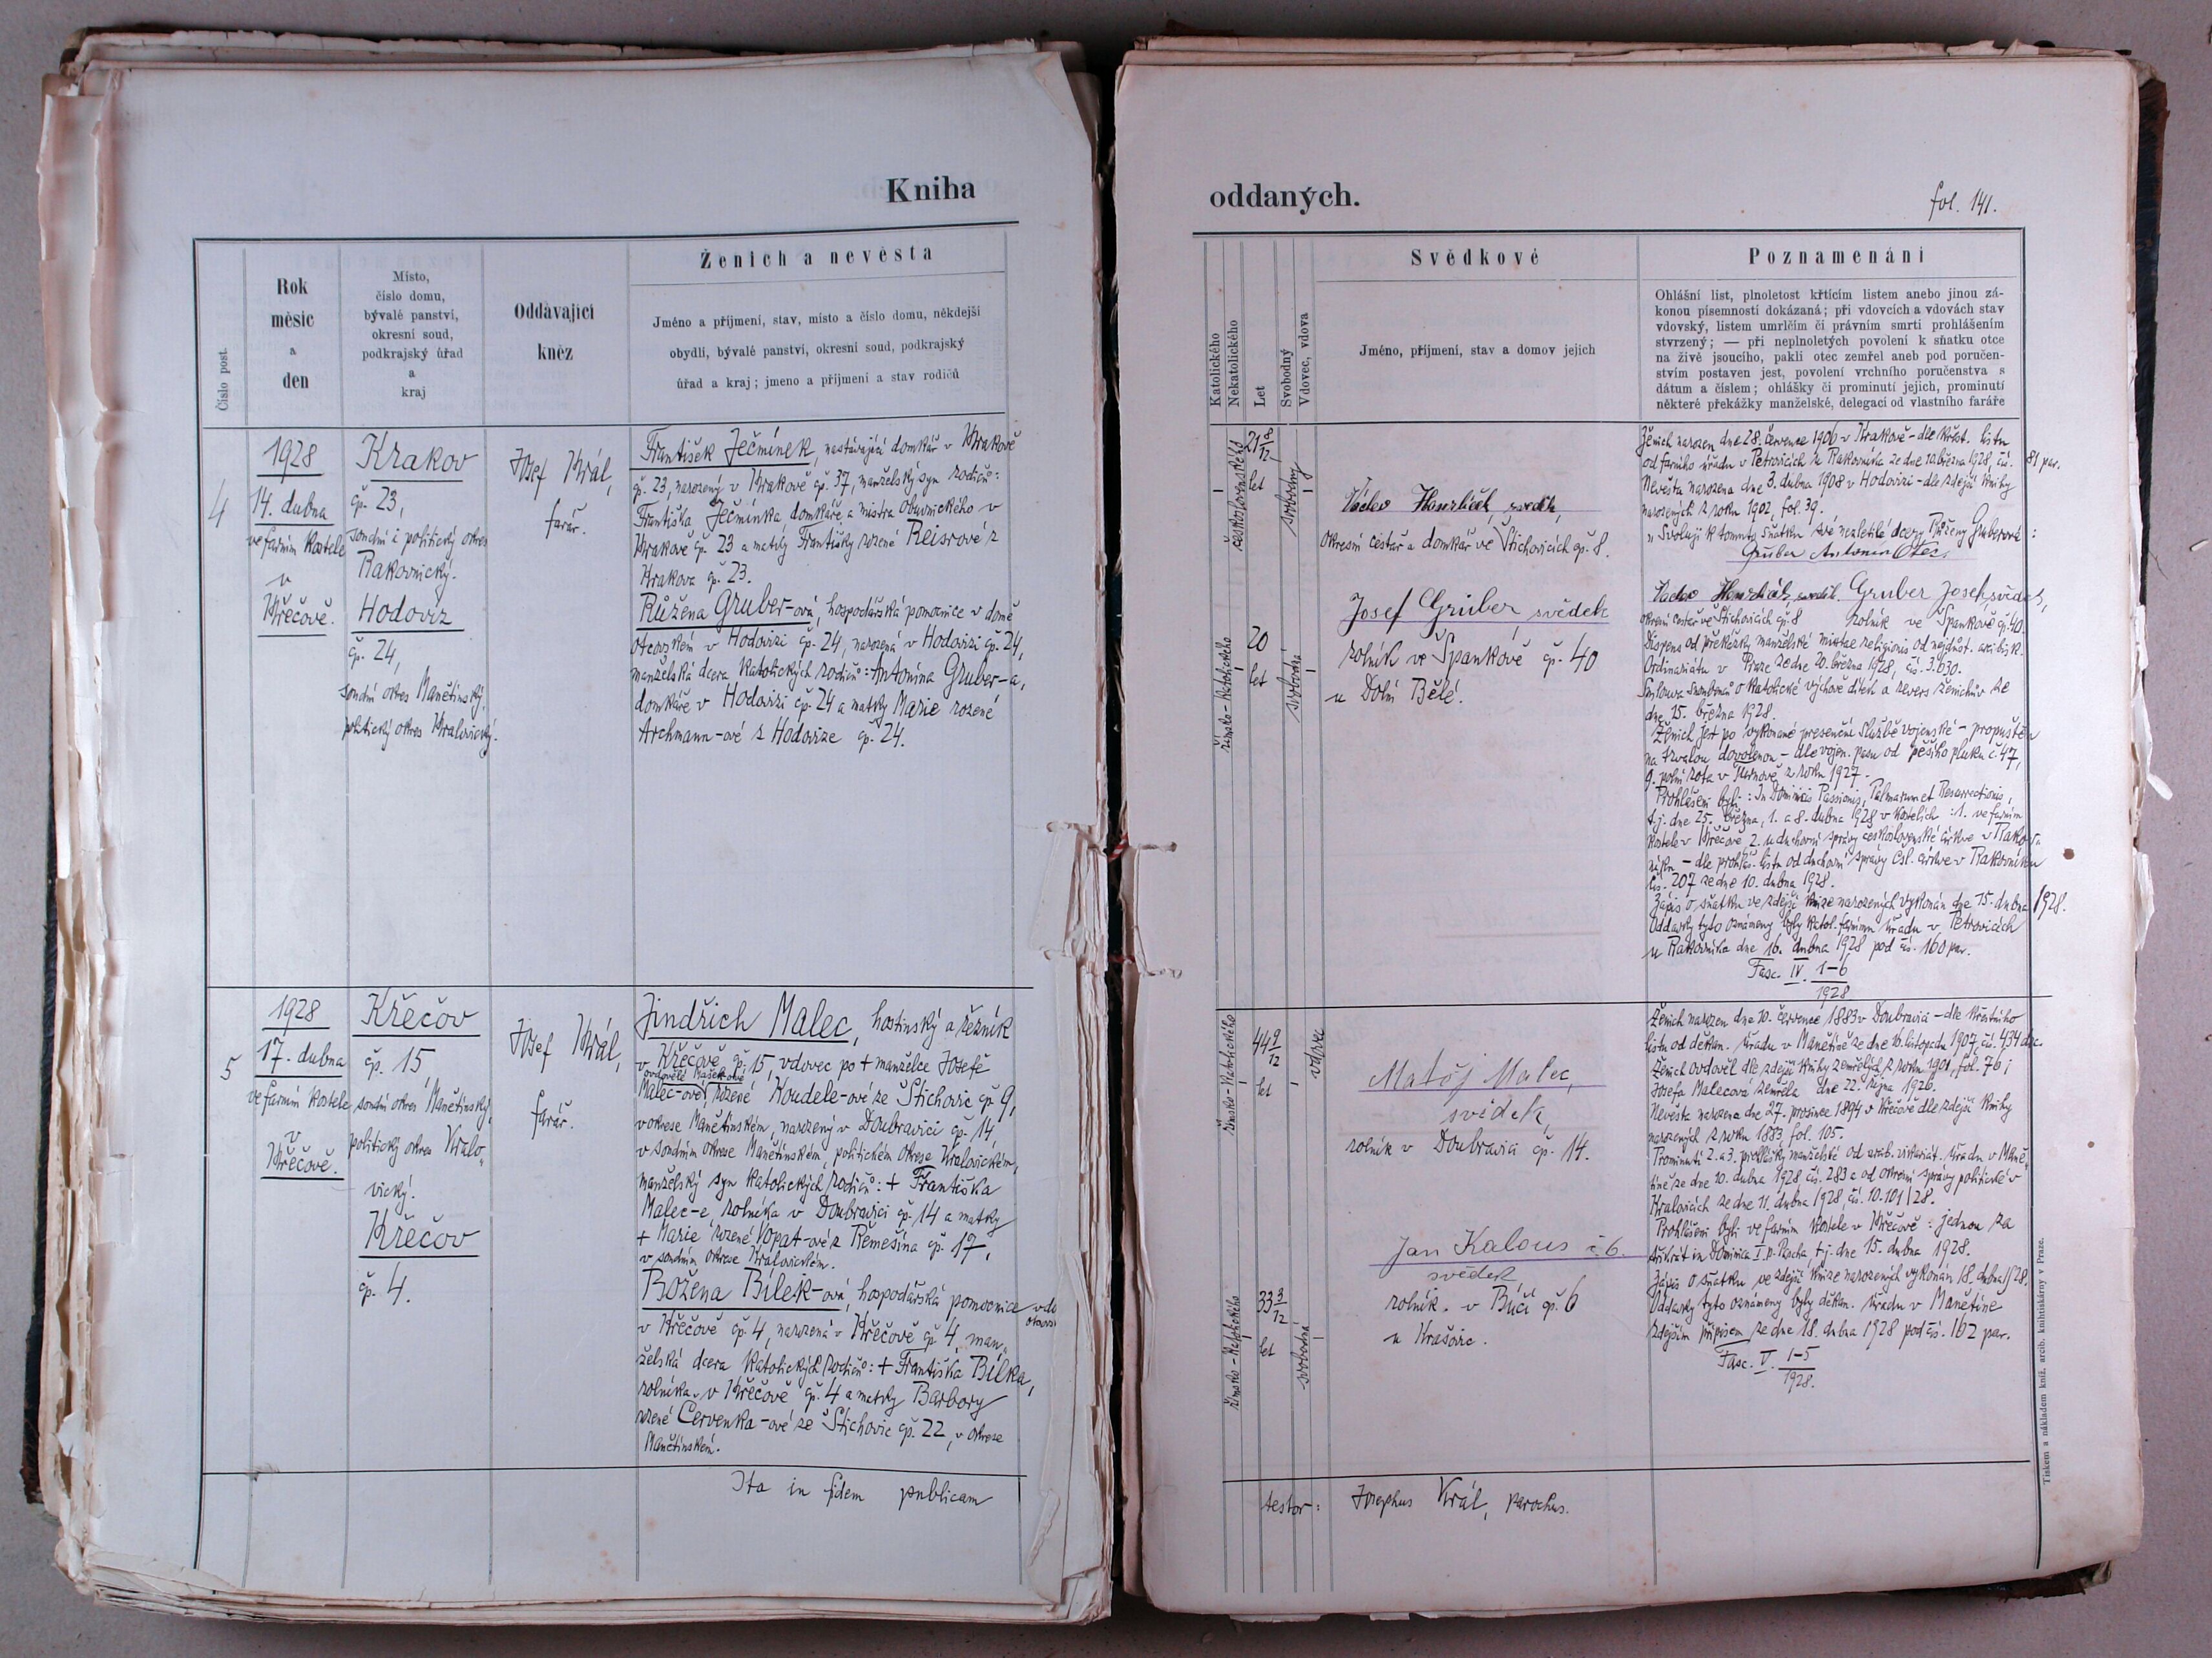 Kniha
Číslo post.
Rok
měsíc
a
den
Místo,
číslo domu,
bývalé panství,
okresní soud,
podkrajský úřad
a
kraj
Oddávající
kněz
Ženich a nevěsta
Jméno a příjmení, stav, místo a číslo domu, někdejší
obydlí, bývalé panství, okresní soud, podkrajský
úřad a kraj; jmeno a příjmení a stav rodičů
4
1928
14. dubna
ve farním kostele
v
Křečově.
Krakov
čp. 23,
soudní i politický okres
Rakovnický.
Hodovíz
čp. 24,
soudní okres Manětínský,
politický okres Kralovický.
Josef Král,
farář.
František Ječmínek, nastávající domkář v Krakově
čp. 23, narozený v Krakově čp. 37, manželský syn rodičů:
Františka Ječmínka, domkáře a mistra obuvnického v
Krakově čp. 23 a matky Františky rozené Reisrové z
Krakova čp. 23.
Růžena Gruber-ová, hospodářská pomocnice v domě
otcovském v Hodovízi čp. 24, narozená v Hodovízi čp. 24,
manželská dcera katolických rodičů: Antonína Gruber-a,
domkáře v Hodovízi čp. 24 a matky Marie rozené
Archmann-ové z Hodovíze čp. 24.
5
1928
17. dubna
ve farním kostele
v
Křečově.
Křečov
čp. 15,
soudní okres Manětínský,
politický okres Kralo„
vický.
Křečov
čp. 4.
Josef Král,
farář.
Jindřich Malec, hostinský a řezník
v Křečově čp. 15, vdovec po + manželce Josefě
ovdovělé
Malec-ové, rozené Koudele-ové ze Štichovic čp. 9,
v okrese Manětínském, narozený v Doubravici čp. 14,
v soudním okrese Manětínském, politickém okrese Kralovickém,
manželský syn katolických rodičů: + Františka
Malec-e, rolníka v Doubravici čp. 14 a matky
+ Marie rozené Vopat-ové z Řemešína čp. 17,
v soudním okrese Kralovickém.
Božena Bílek-ová, hospodářská pomocnice v do
v Křečově čp. 4, narozená v Křečově čp. 4, man„
želská dcera katolických rodičů: + Františka Bílka,
rolníka v Křečově čp. 4 a matky Barbory
rozené Červenka-ové ze Štichovic čp. 22, v okrese
Manětínském.
Ita in fidem publicam
oddaných.
fol. 141.
Katolického
Nekatolického
Let
Svobodný
Vdovec, vdova
Svědkové
Jméno, příjmení, stav a domov jejich
Poznamenání
Ohlášní list, plnoletost křtícím listem anebo jinou zá-
konou písemností dokázaná; při vdovcích a vdovách stav
vdovský, listem umrlčím či právním smrti prohlášením
stvrzený; — při neplnoletých povolení k sňatku otce
na živě jsoucího, pakli otec zemřel aneb pod poručen-
stvím postaven jest, povolení vrchního poručenstva s
dátum a číslem; ohlášky či prominutí jejich, prominutí
některé překážky manželské, delegací od vlastního faráře
československého
21 8/12
let
svobodný
římsko-katolického
20
let
svobodná
Václav Hanzlíček, svědek,
okresní cestář a domkář ve Štichovicích čp. 8.
Josef Gruber, svědek
rolník ve Špankově čp. 40
u Dolní Bělé.
Ženich narozen dne 28. července 1906 v Krakově - dle křest. listu
od farního úřadu v Petrovicích u Rakovníka ze dne 10. března 1928, čís. 81 par.
Nevěsta narozena dne 3. dubna 1908 v Hodovízi - dle zdejší knihy
narozených z roku 1902, fol. 39.
„Svoluji k tomuto sňatku své nezletilé dcery Růženy Gruberové:
Gruber Antonín Otec.
Václav Hanzlíček, svědek. Gruber Josef, svědek,
okresní cestář ve Štichovicích čp. 8 rolník ve Špankově čp. 40.
Dispens od překážky manželské mixtae religionis od nejdůst. arcibisk.
Ordinariátu v Praze ze dne 20. března 1928, čís. 3.030.
Smlouva snoubenců o katolické výchově dítek a revers ženichův ze
dne 15. března 1928.
Ženich jest po vykonané presenční službě vojenské - propuštěn
na trvalou dovolenou - dle vojen. pasu od pěšího pluku č. 47,
9. polní rota v z roku 1927.
Prohlášeni byli: In Dominicis Passionis, Palmarum et Resurrectionis,
t.j. dne 25. března, 1. a 8. dubna 1928 v kostelích: 1. ve farním
kostele v Křečově 2. u duchovní správy československé církve v Rakov„
níku - dle prohláš. listu od duchovní správy čsl. církve v Rakovníku
čís. 207 ze dne 10. dubna 1928.
Zápis o sňatku ve zdejší knize narozených vykonán dne 15. dubna 1928.
Oddavky tyto oznámeny byly katol. farnímu úřadu v Petrovicích
u Rakovníka dne 16. dubna 1928 pod čís. 160 par.
Fasc. IV. 1-6
1928
římsko-katolického
44 9/12
let
vdovec
římsko-katolického
33 3/12
let
svobodná
Matěj Malec,
svědek,
rolník v Doubravici čp. 14.
Jan Kalous č. 6.
svědek
rolník v Búči čp. 6
u Krašovic.
Ženich narozen dne 10. července 1883 v Doubravici - dle křestního
listu od děkan. úřadu v Manětíně ze dne 16. listopadu 1907, čís. 434 dec.
Ženich ovdověl dle zdejší knihy zemřelých z roku 1901, fol. 76;
Josefa Malecová zemřela dne 22. října 1926.
Nevěsta narozena dne 27. prosince 1894 v Křečově dle zdejší knihy
narozených z roku 1883, fol. 105.
Prominutí 2. a 3. prohlášky manželské od arcib. vikariát. úřadu v Maně„
tíně ze dne 10. dubna 1928, čís. 283 a od okresní správy politické v
Kralovicích ze dne 11. dubna 1928, čís. 10.101/28.
Prohlášeni byli ve farním kostele v Křečově: jednou za
třikrát in Dominica I. p. Pascha, t.j. dne 15. dubna 1928.
Zápis o sňatku ve zdejší knize narozených vykonán 18. dubna 1928.
Oddavky tyto oznámeny byly děkan. úřadu v Manětíně
zdejším přípisem ze dne 18. dubna 1928 pod čís. 162 par.
Fasc. V. 1-5
1928.
testor: Josephus Král, parochus.
Tiskem a nákladem kníž. arcib. knihtiskárny v Praze.